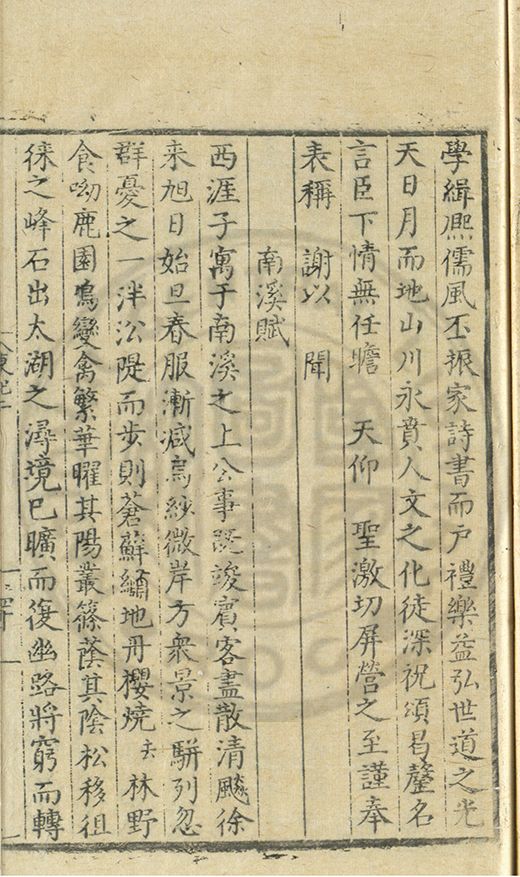 學緝熈儒風丕振家詩書而户禮樂益弘世道之光
天日月而地山川永賁人文之化徒深祝頌曷罄名
言臣下情無任瞻　天仰　聖激切屏營之至謹奉
表稱　謝以　聞
南溪賦
西涯子寓于南溪之上公事既竣賓客盡散清飈徐
来旭日始旦春服漸減烏紗微岸方衆景之駢列忽
群憂之一泮沿隄而步則蒼蘚繡地丹櫻燒去林野
食呦鹿園鳴變禽繁華曜其陽叢篠蔭其陰松移徂
徠之峰石出太湖之潯境已曠而復幽路將窮而轉